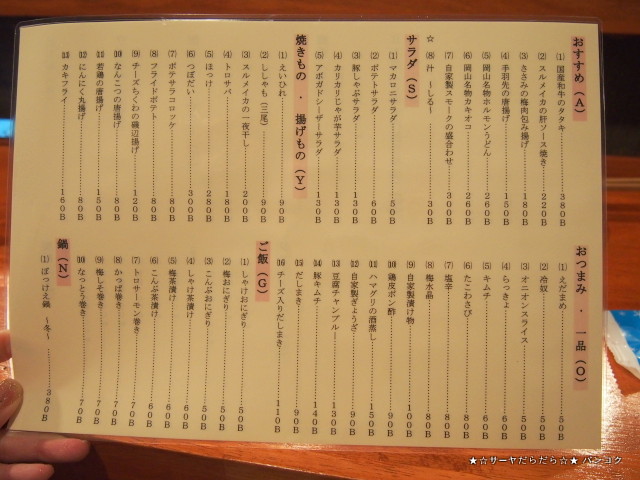 おすすめ（A）
⑴ 国産和牛のタタキ 380B
⑵ スルメイカの肝ソース焼き 220B
⑶ ささみの梅肉包み揚げ 180B
⑷ 手羽先の唐揚げ 150B
⑸ 岡山名物ホルモンうどん 260B
⑹ 岡山名物カキオコ 260B
⑺ 自家製スモークの盛合わせ 300B
☆
⑻ 汁 ～しる～ 30B
サラダ（S）
⑴ マカロニサラダ 50B
⑵ ポテトサラダ 60B
⑶ 豚しゃぶサラダ 130B
⑷ カリカリじゃが芋サラダ 130B
⑸ アボガドシーザーサラダ 130B
焼きもの ・ 揚げもの（Y）
⑴ えいひれ 90B
⑵ ししゃも（三尾） 90B
⑶ スルメイカの一夜干し 200B
⑷ トロサバ 180B
⑸ ほっけ 280B
⑹ つぼだい 300B
⑺ ポテサラコロッケ 80B
⑻ フライドポテト 80B
⑼ チーズちくわの磯辺揚げ 120B
⑽ なんこつの唐揚げ 80B
⑾ 若鶏の唐揚げ 150B
⑿ にんにく丸揚げ 80B
⒀ カキフライ 160B
おつまみ ・ 一品（O）
⑴ えだまめ 50B
⑵ 冷奴 50B
⑶ オニオンスライス 50B
⑷ らっきょ 60B
⑸ キムチ 60B
⑹ たこわさび 80B
⑺ 塩辛 80B
⑻ 梅水晶 80B
⑼ 自家製漬け物 100B
⑽ 鶏皮ポン酢 90B
⑾ ハマグリの酒蒸し 150B
⑿ 自家製ぎょうざ 90B
⒀ 豆腐チャンプルー 130B
⒁ 豚キムチ 140B
⒂ だしまき 90B
⒃ チーズ入りだしまき 110B
ご飯（G）
⑴ しゃけおにぎり 50B
⑵ 梅おにぎり 50B
⑶ こんぶおにぎり 50B
⑷ しゃけ茶漬け 60B
⑸ 梅茶漬け 60B
⑹ こんぶ茶漬け 60B
⑺ トロサーモン巻き 70B
⑻ かっぱ巻き 70B
⑼ 梅しそ巻き 70B
⑽ なっとう巻き 70B
鍋（N）
⑴ ばっけえ鍋 ～冬～ 380B
★☆サーヤだらだら☆★ バンコク